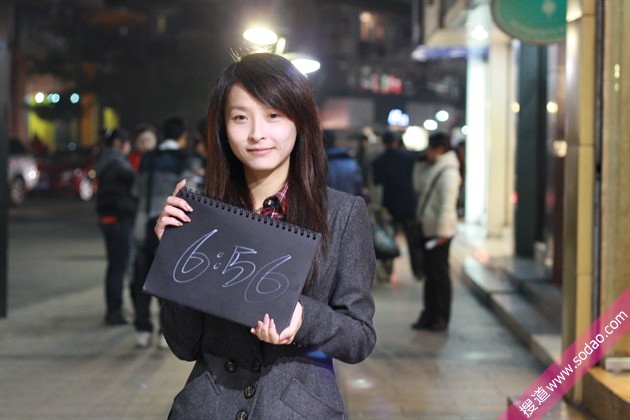 6:56
搜道 www.sodao.com